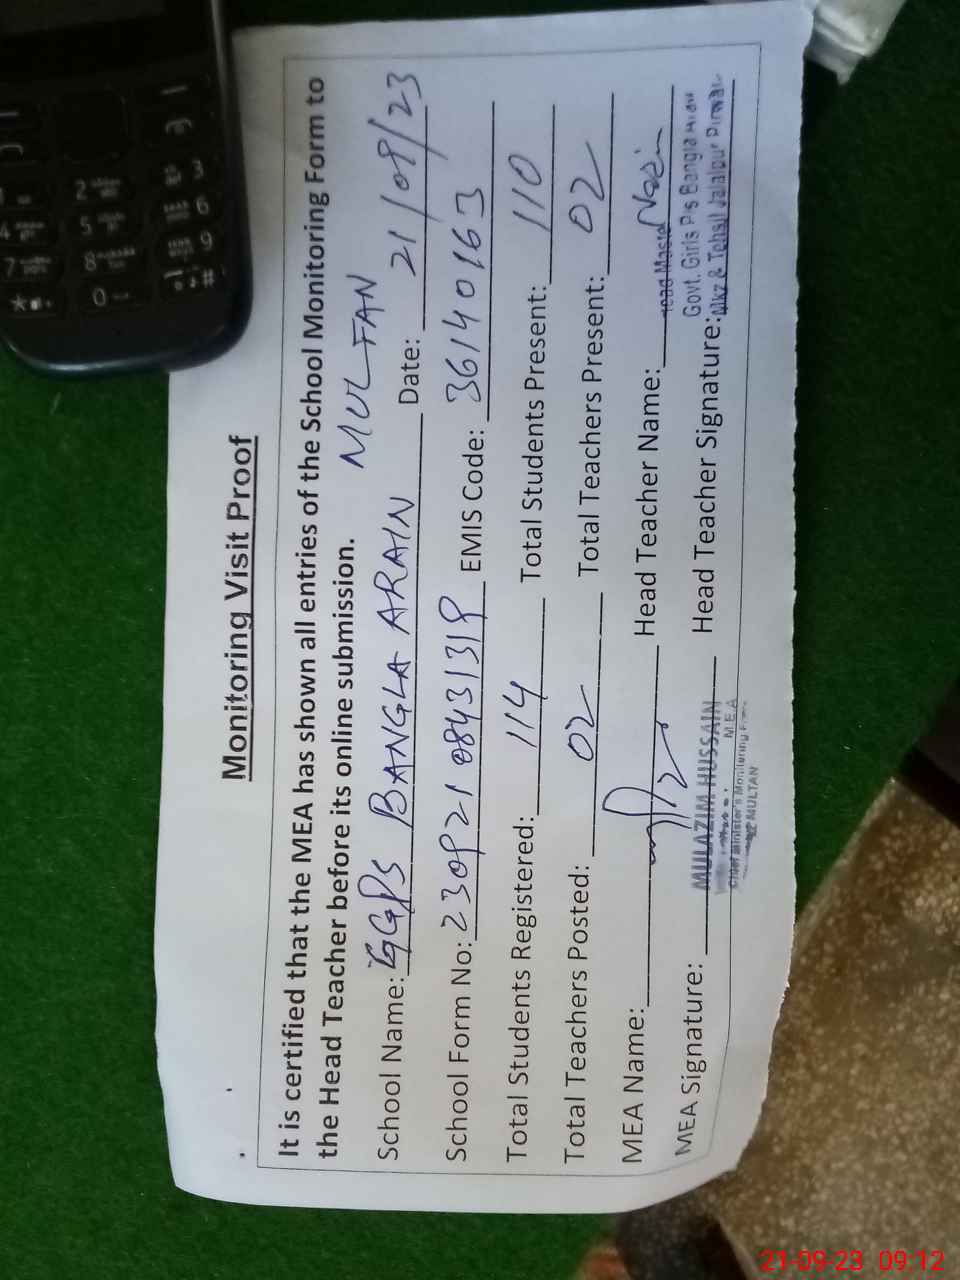 Monitoring Visit Proof
It is certified that the MEA has shown all entries of the School Monitoring Form to
the Head Teacher before its online submission.
MULTAN
School Name: GGPS BANGLA ARAIN Date: 21/09/23
School Form No: 230921 08431319 EMIS Code: 36140163
Total Students Registered: 114 Total Students Present: 110
Total Teachers Posted: 02 Total Teachers Present: 02
MEA Name: Head Teacher Name:
Head
Govt. Girls P/s Bangla
MEA Signature: Head Teacher Signature:
Mkz & Tehsil Jalalpur Pirwala
MULAZIM HUSSAIN
M E A
Chief Minister's Monitoring Force
MULTAN
2 3
4 5 6
7 8 9
* 0 #
21-09-23 09:12